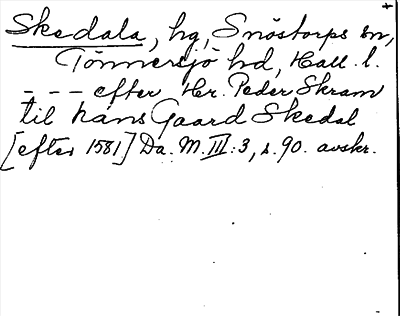 Skedala, hg, Snöstorps sn,
Tönnersjö hd, Hall. l.
- - - efter Hr. Peder Skram
til hans Gaard Skedal
[efter 1581] Da. M. III: 3, s. 90. avskr.